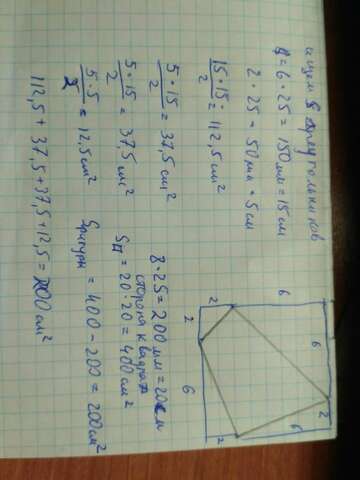 ищем S треугольников
a = 6 · 25 = 150 мм = 15 см
2 · 25 = 50 мм = 5 см
15 · 15 / 2 = 112,5 см²
5 · 15 / 2 = 37,5 см²
5 · 15 / 2 = 37,5 см²
5 · 5 / 2 = 12,5 см²
112,5 + 37,5 + 37,5 + 12,5 = 200 см²
8 · 25 = 200 мм = 20 см
сторона квадрата
S□ = 20 · 20 = 400 см²
Sфигуры = 400 - 200 = 200 см²
6
2
6
2
2
6
6
2